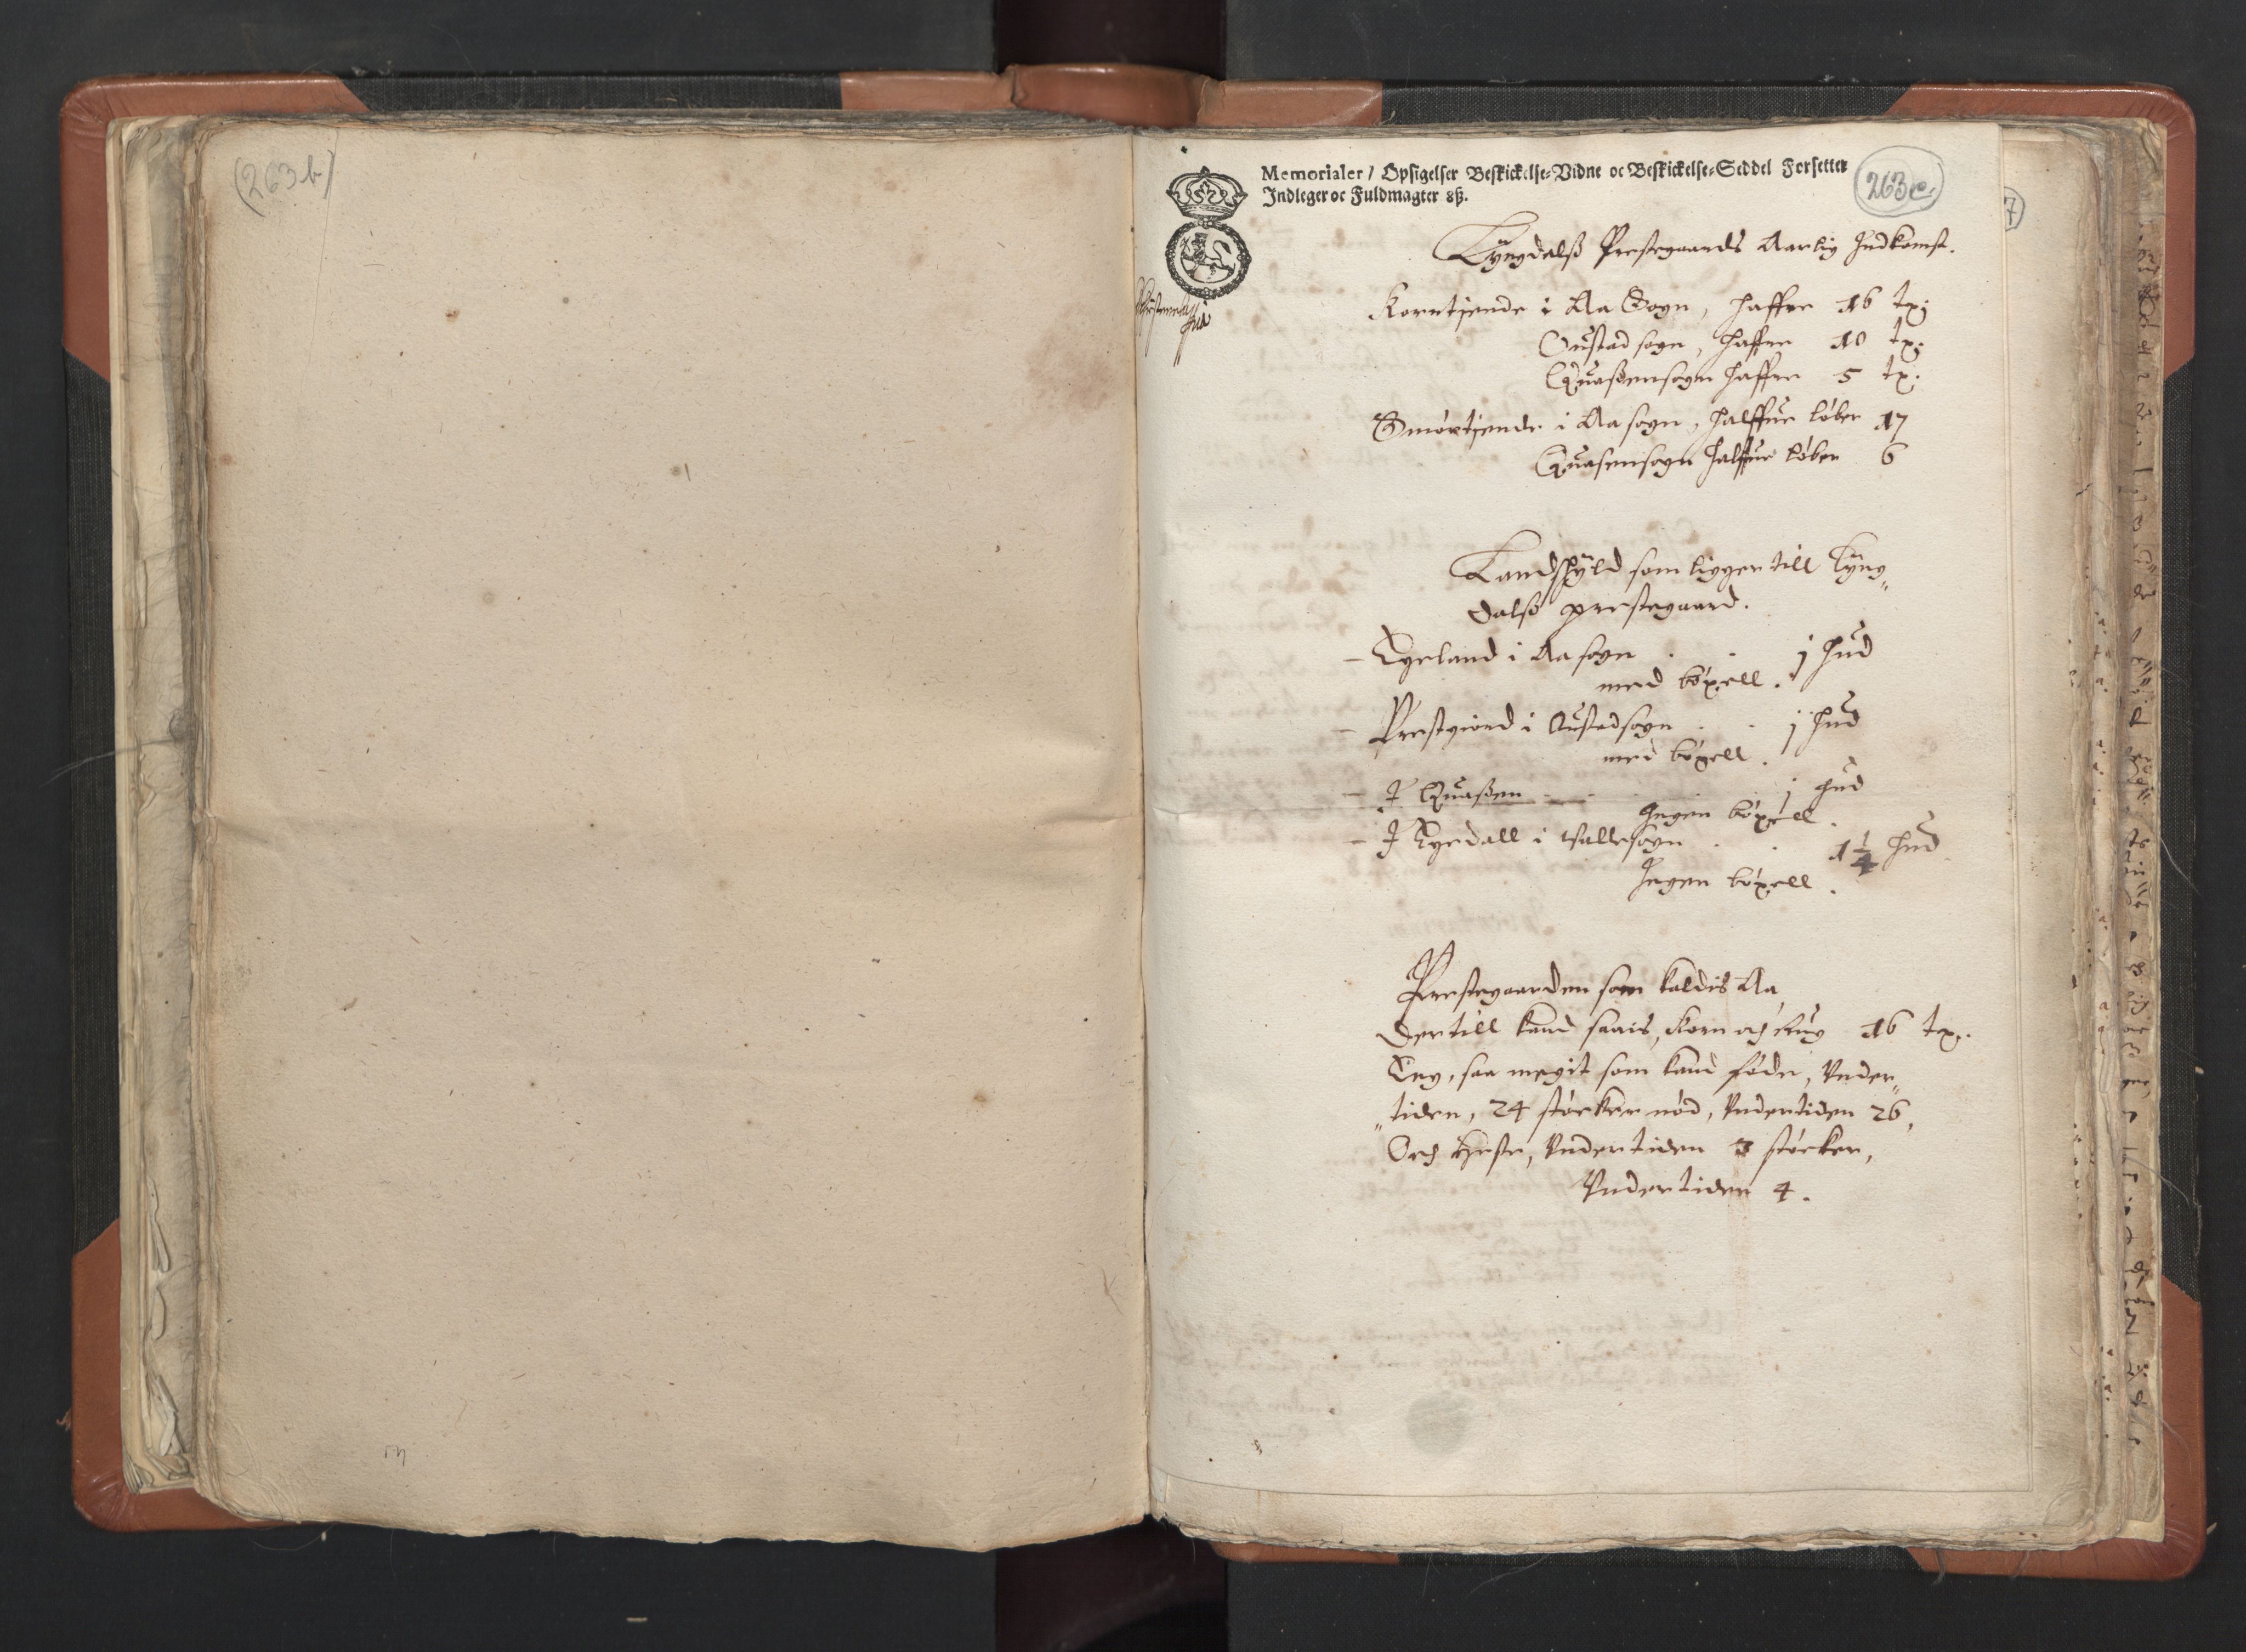 (263b)
Memorialer / Opsigelser Beskickelse-Vidne oc Beskickelse-Seddel Forsetter
Indleger oc Fuldmagter 8ß.
263c.
7)
Lÿngdalß Prestegaards Aarlig Indkomst.
Korntjende i Aa Sogn, haffre 16 tx;
Oustad sogn, haffre 10 tx;
Quaßensogn haffre 5 tx.
Smørtjende i Aa sogn, halffue løber 17
Quasensogn halffue løber 6
Landskÿld som ligger till Lÿng„
dalß prestegaard.
– Eyeland i Aa sogn . . j hud
med bøxell.
– Prestgiord i Austadsogn . . j hud
med bøxell.
– I Quaßen . . . j hud
Ingen bøxell.
– I Eyedall i Vallesogn . . 1 1/4 hud
Ingen bøxell.
Prestegaarden som kaldis Aa
Dertill kand saais, Korn och Rug 16 tx.
Eng, saa megit som kand føde, Vnder„
„tiden, 24 støcker nød, Vndertiden 26,
Och Heste, Vndertiden 3 støcker,
Vndertiden 4.